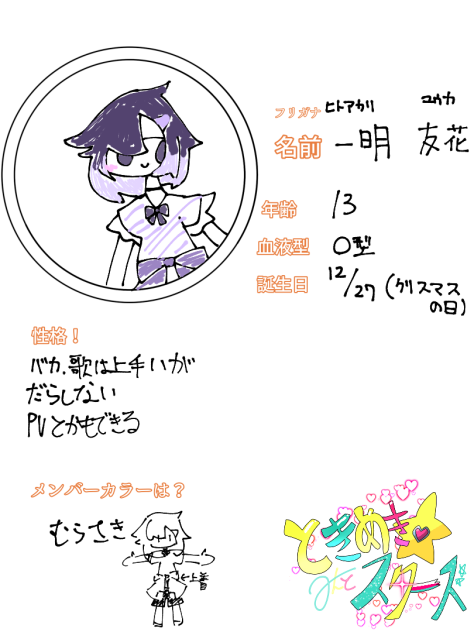 フリガナ ヒトアカリ ユウカ
名前 一明 友花
年齢 13
血液型 O型
誕生日 12/27 (クリスマス
の日)
性格!
バカ、歌は上手いが
だらしない
PVとかもできる
メンバーカラーは?
むらさき
ときめき
スターズ